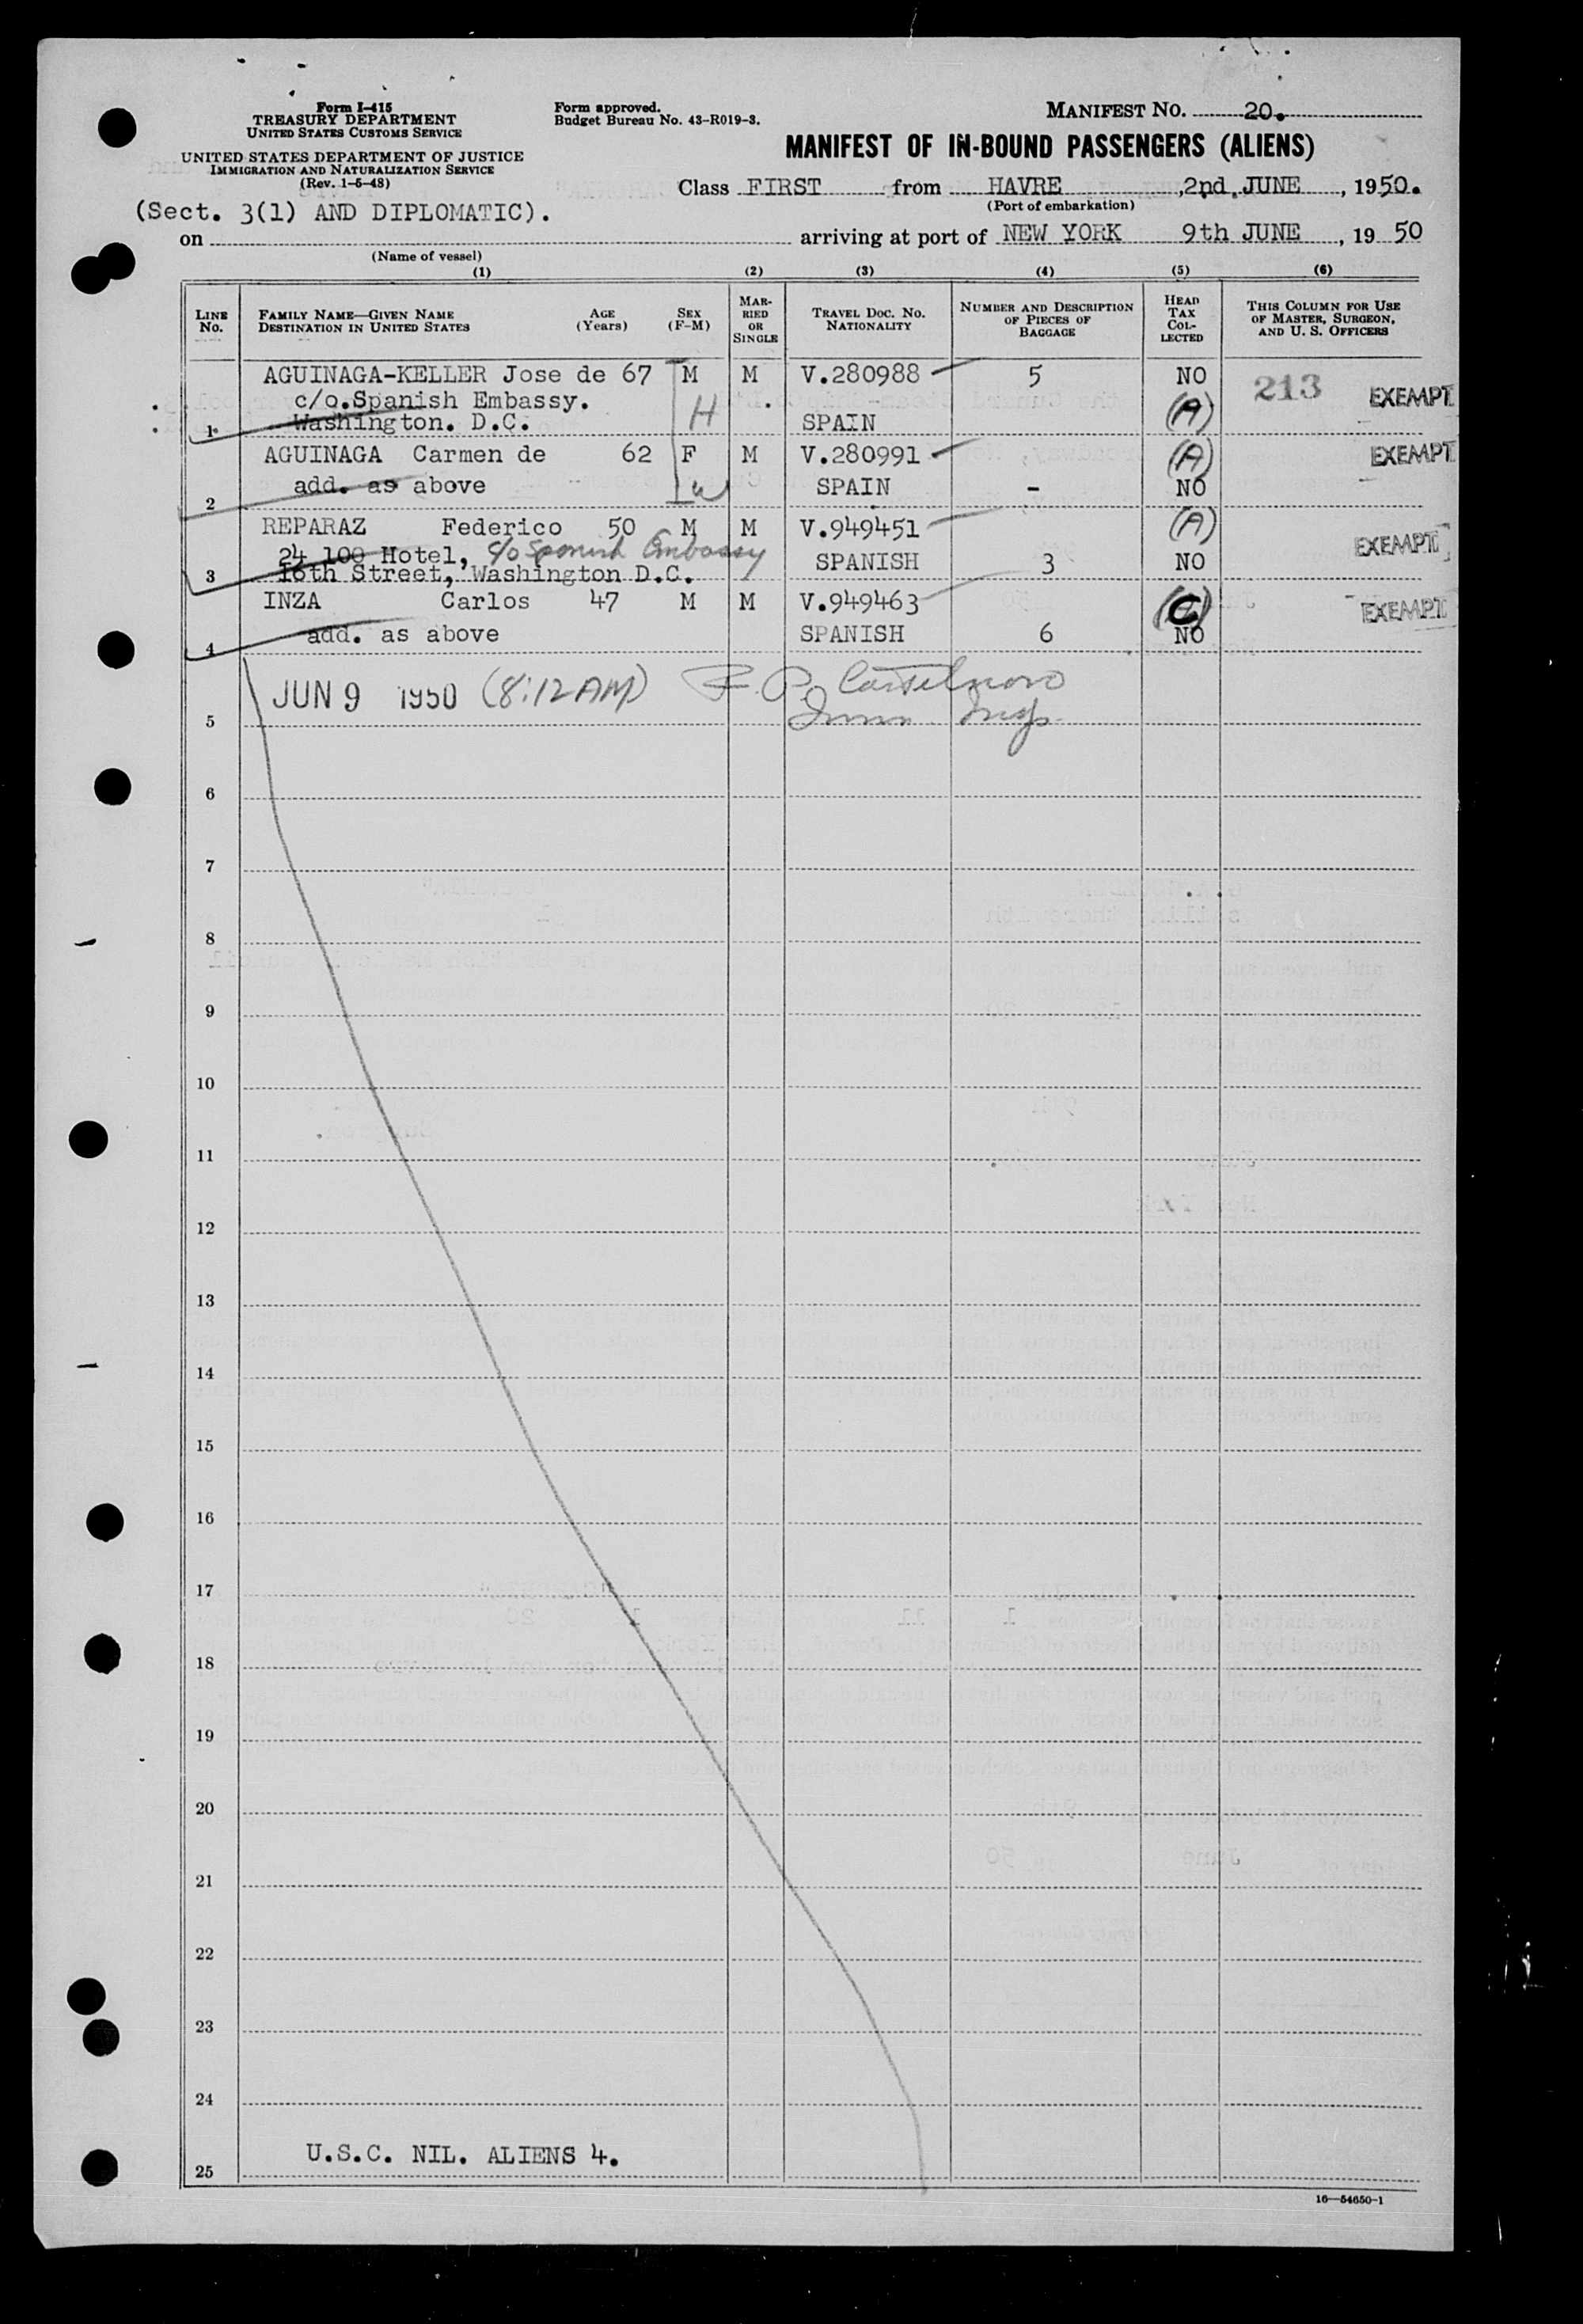 Form I-415
TREASURY DEPARTMENT
UNITED STATES CUSTOMS SERVICE
UNITED STATES DEPARTMENT OF JUSTICE
IMMIGRATION AND NATURALIZATION SERVICE
(Rev. 1-5-48)
(Sect. 3(1) AND DIPLOMATIC).
Form approved.
Budget Bureau No. 43-R019-3.
MANIFEST NO. 20.
MANIFEST OF IN-BOUND PASSENGERS (ALIENS)
Class FIRST from HAVRE, 2nd. JUNE, 1950.
(Port of embarkation)
on arriving at port of NEW YORK 9th JUNE, 19 50
(Name of vessel)
(1) (2) (3) (4) (5) (6)
LINE No. FAMILY NAME—GIVEN NAME DESTINATION IN UNITED STATES AGE (Years) SEX (F-M) MARRIED OR SINGLE TRAVEL DOC. NO. NATIONALITY NUMBER AND DESCRIPTION OF PIECES OF BAGGAGE HEAD TAX COLLECTED THIS COLUMN FOR USE OF MASTER, SURGEON, AND U. S. OFFICERS
AGUINAGA-KELLER Jose de 67 M M V.280988 5 NO 213 EXEMPT
c/o.Spanish Embassy. H (A)
1 Washington. D.C. SPAIN
AGUINAGA Carmen de 62 F M V.280991 (A) EXEMPT
2 add. as above W SPAIN - NO
REPARAZ Federico 50 M M V.949451 (A)
24 100 Hotel, c/o Spanish Embassy SPANISH 3 NO EXEMPT
3 16th Street, Washington D.C.
INZA Carlos 47 M M V.949463 (C) EXEMPT
4 add. as above SPANISH 6 NO
JUN 9 1950 (8:12 AM) F. P. Castelnovo
5 Imm Insp.
6
7
8
9
10
11
12
13
14
15
16
17
18
19
20
21
22
23
24
25 U.S.C. NIL. ALIENS 4.
16—54650-1